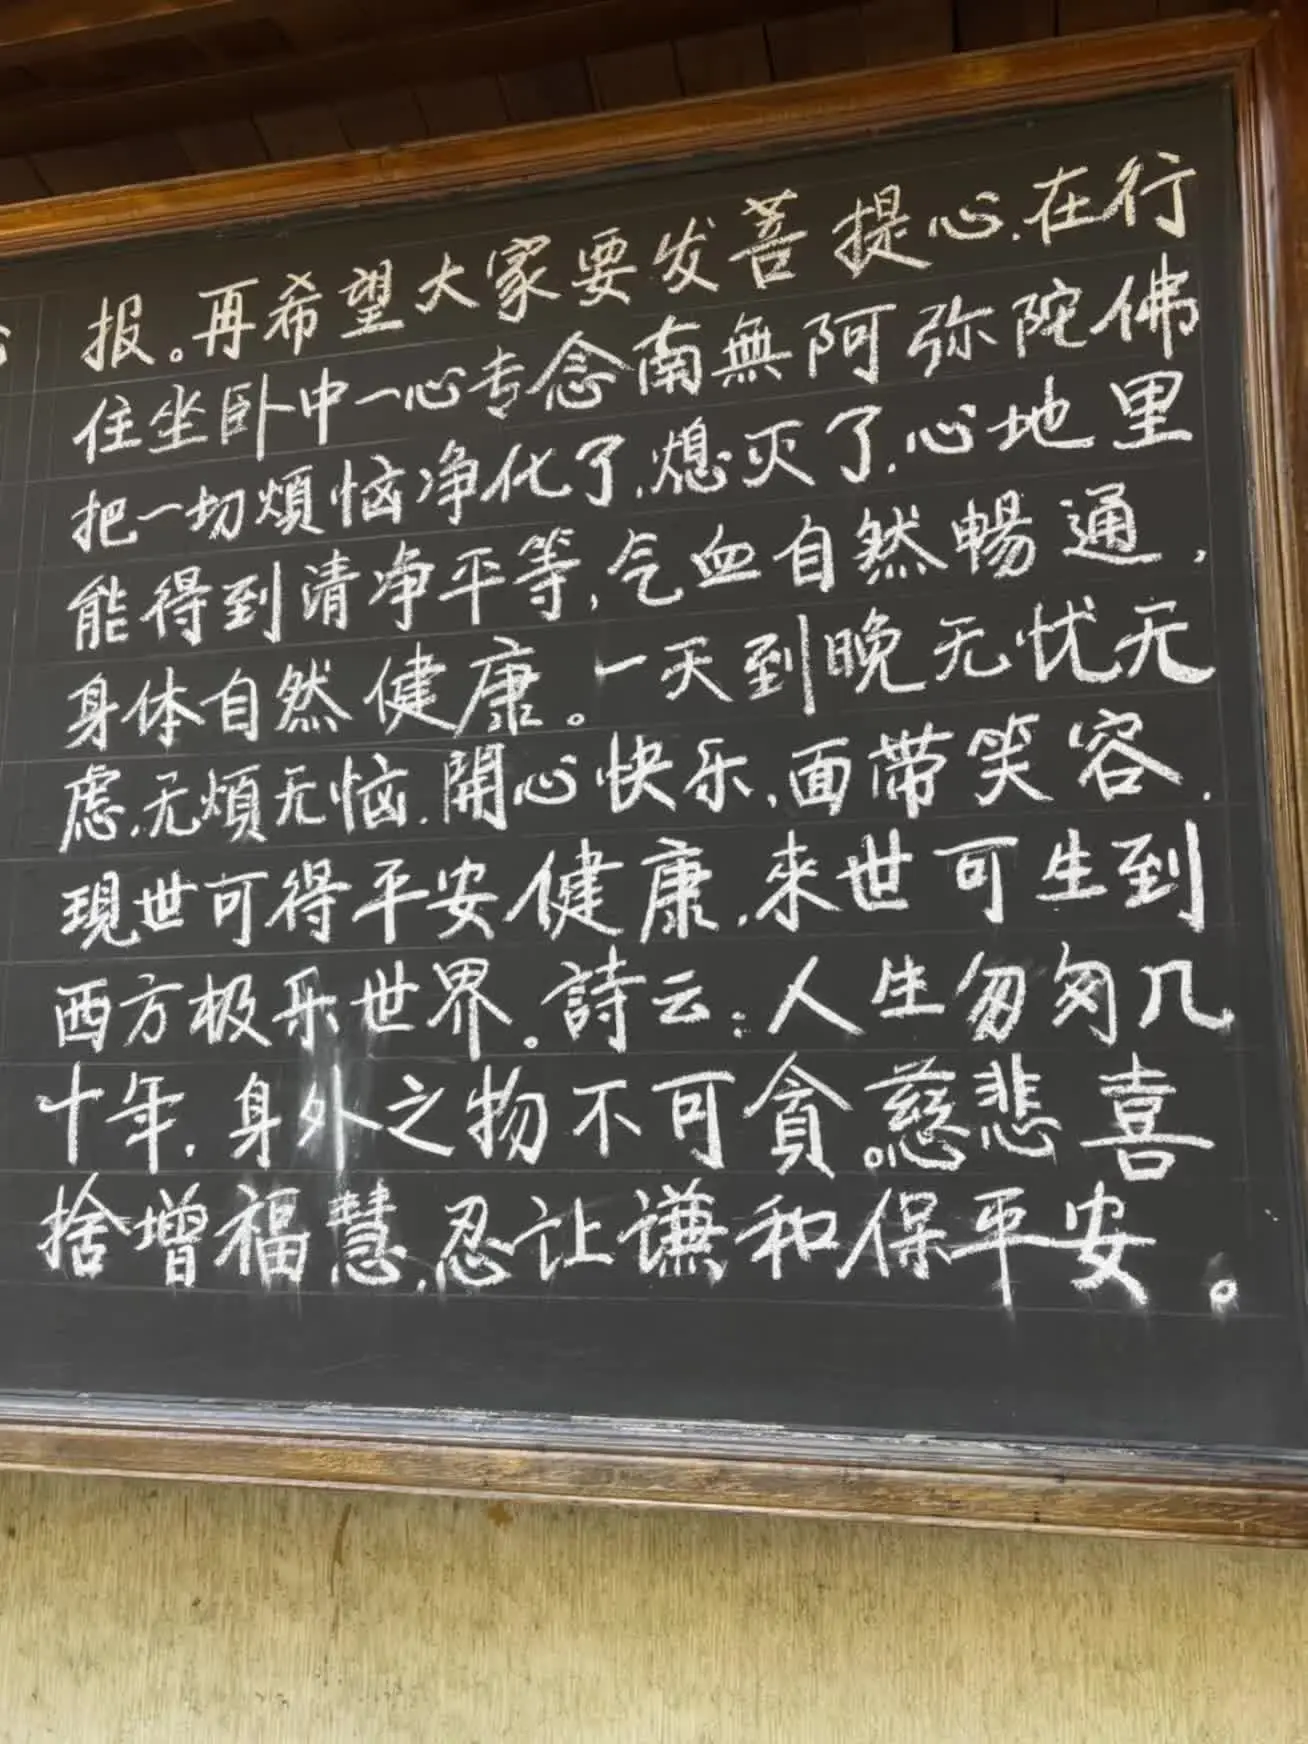 报。再希望大家要发菩提心.在行
住坐卧中一心专念南無阿弥陀佛
把一切煩恼净化了,熄灭了.心地里
能得到清净平等,气血自然暢通,
身体自然健康。一天到晚无忧无
虑,无煩无恼.開心快乐,面带笑容.
現世可得平安健康,來世可生到
西方极乐世界。詩云:人生匆匆几
十年.身外之物不可貪。慈悲喜
捨增福慧,忍让谦和保平安。